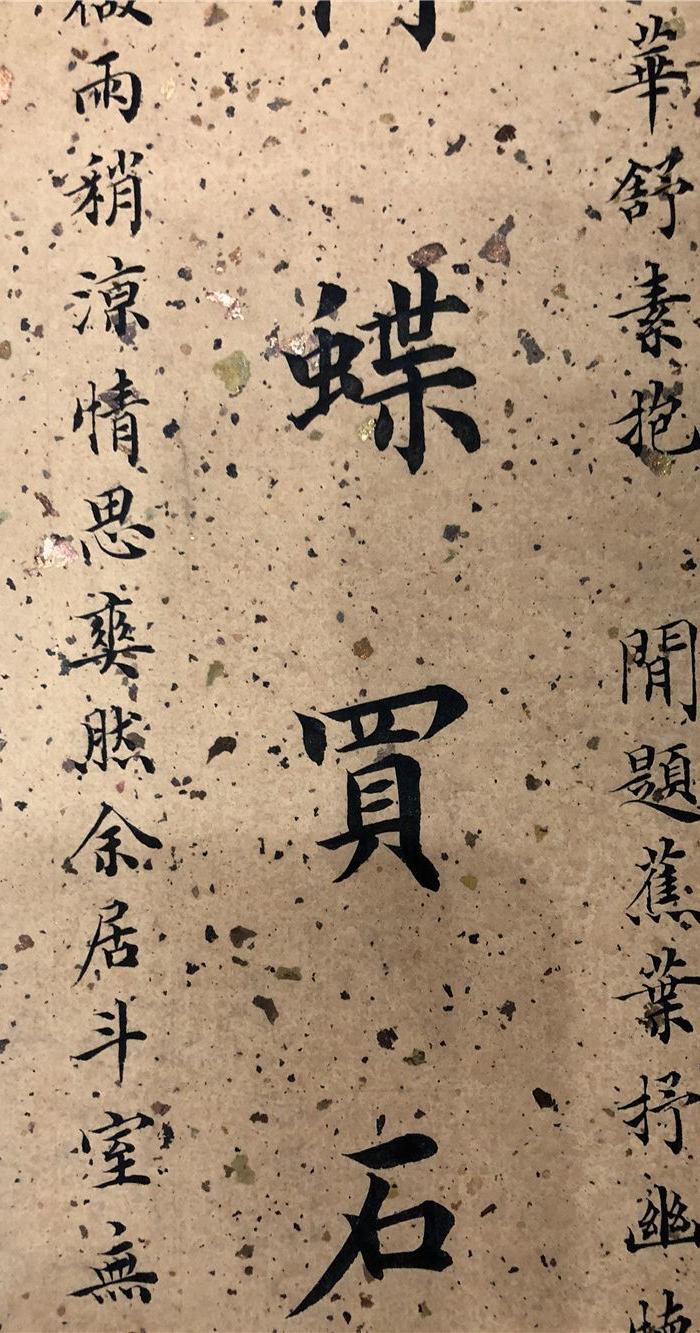 華舒素抱 閒題蕉葉抒幽
蝶買石
雨稍涼情思奭然余居斗室無